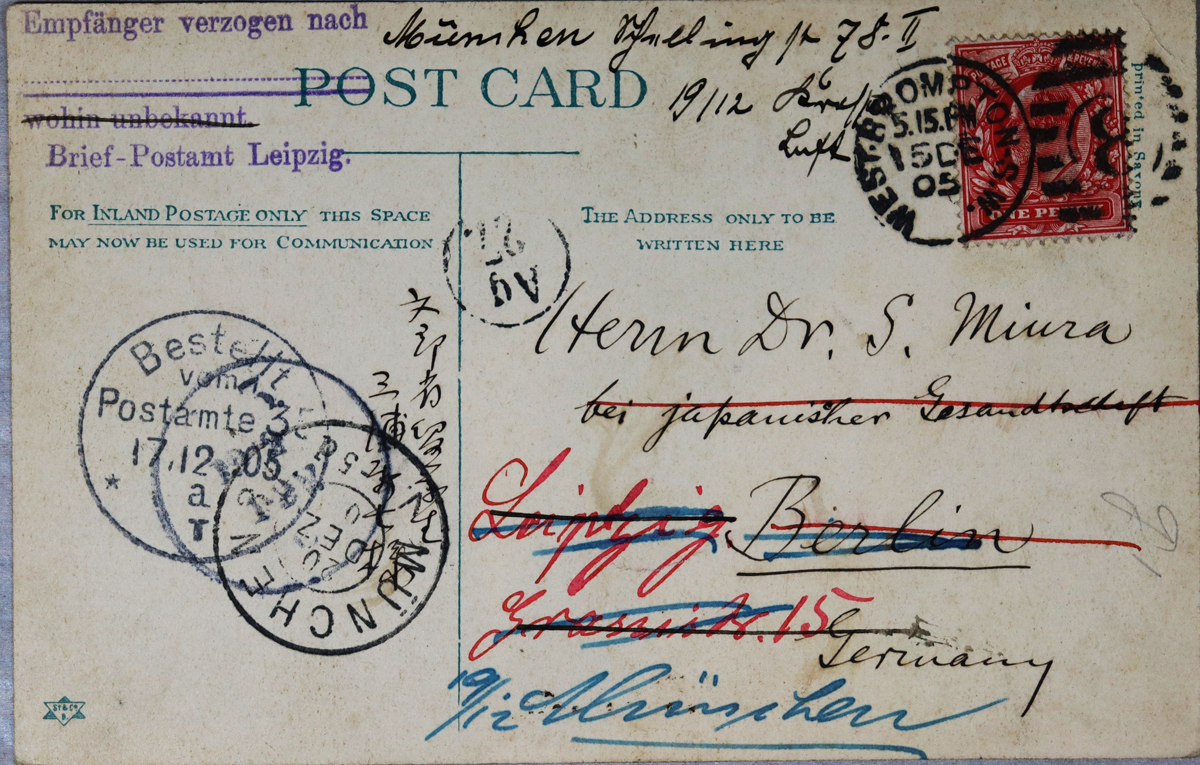 Empfänger verzogen nach
München Schellingstr 78. II
POST CARD
19/12
Luft
wohin unbekannt.
Brief-Postamt Leipzig.
WEST-BROMPTON S.W.
5.15.PM
15 DE
05
ONE PENNY
printed in Saxony
FOR INLAND POSTAGE ONLY THIS SPACE
MAY NOW BE USED FOR COMMUNICATION
THE ADDRESS ONLY TO BE
WRITTEN HERE
Herrn Dr. S. Miura
bei japanischer Gesandtschaft
Leipzig. Berlin
Grassistr. 15
Germany
19/12 München
文部省留学生
三浦
Bestellt
vom
Postamte 35
17.12 05
a
T
MÜNCHEN